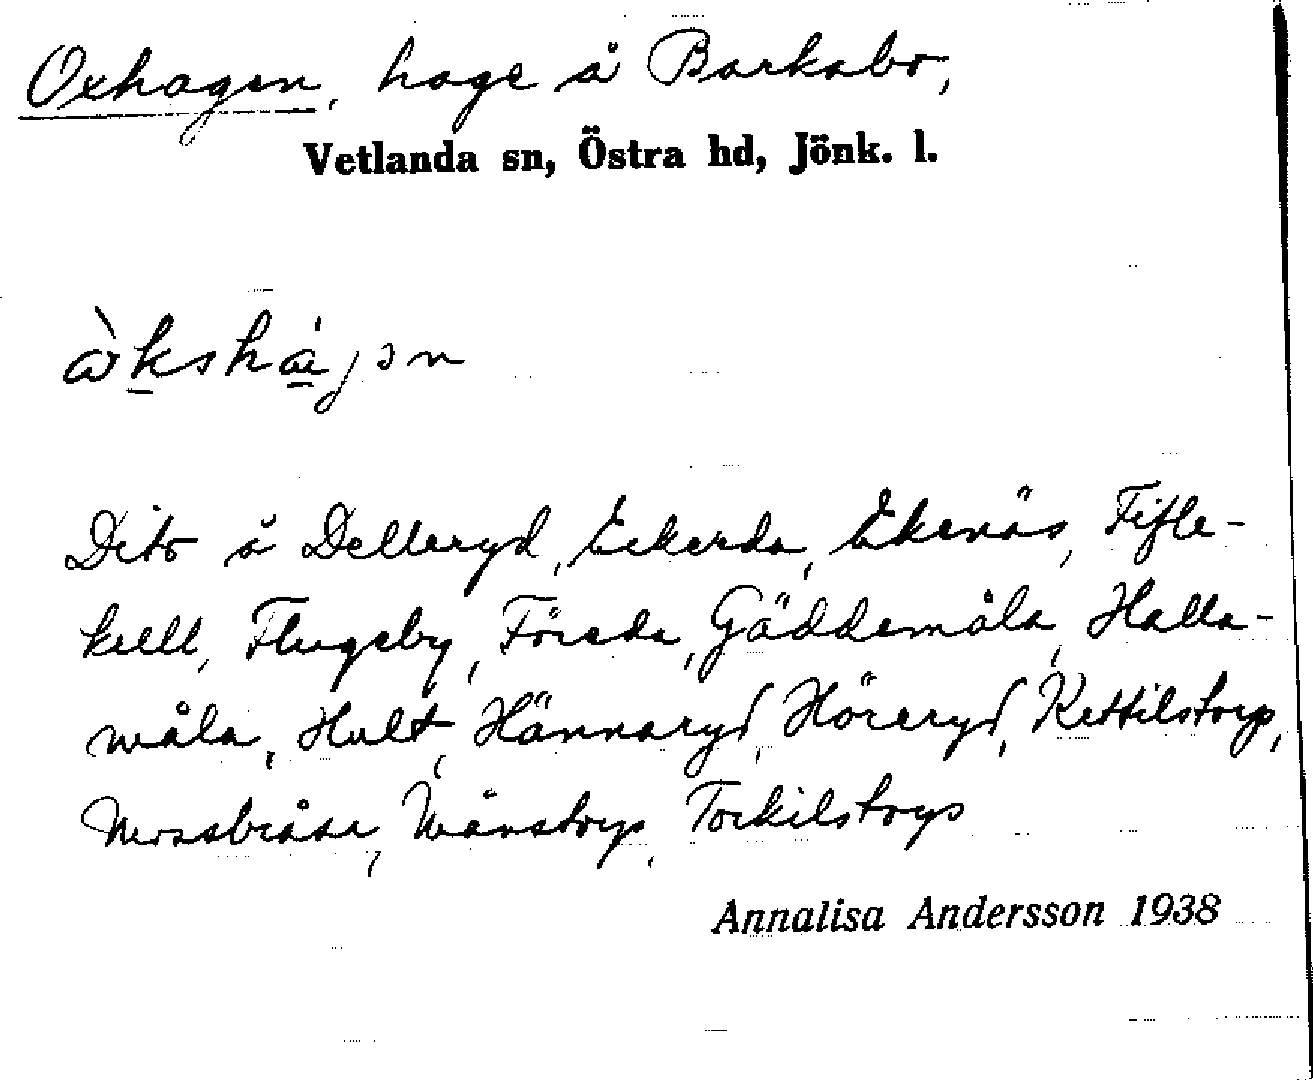 Oxhagen, hage å Barkabo,
Vetlanda sn, Östra hd, Jönk. l.
Dito å Delleryd, Eckerda, Ekenäs, Fifle-
kull, Flugeby, Föreda, Gäddemåla, Halla-
måla, Hult, Hännaryd, Höreryd, Kettilstorp,
Mossbråna, Månstorp, Torkilstorp
Annalisa Andersson 1938